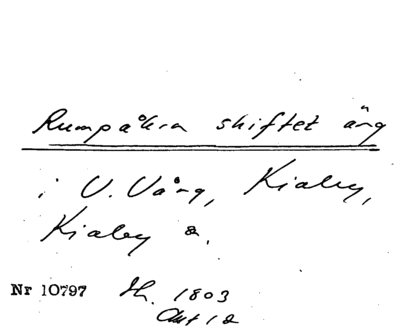 Rumpåkra skiftet äng
i V. Vång, Kiaby,
Kiaby s.
Nr 10797 Sk. 1803
Akt 12